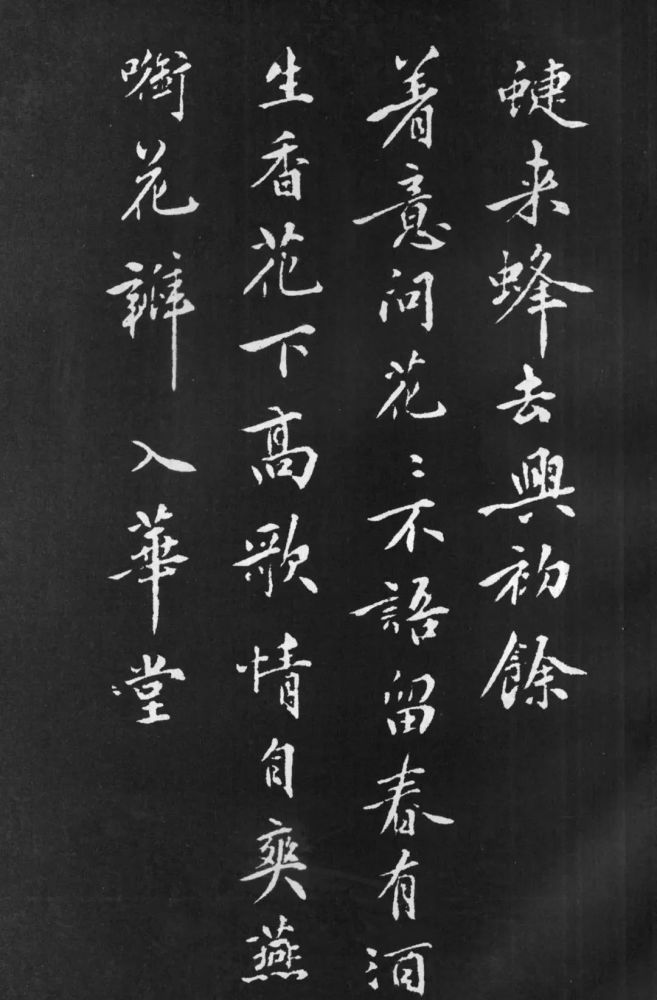 蜨来蜂去興初餘
着意问花〻不語留春有酒
生香花下髙歌情自爽燕
啣花瓣入華堂